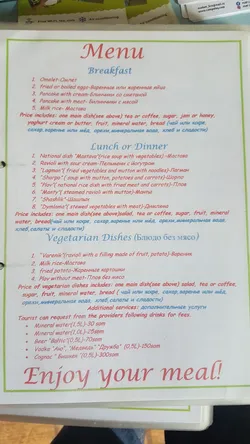 Menu
Breakfast
1. Omolet-Омлет
2. Fried or boiled eggs-Варенные или жаренные яйца
3. Pancake with cream-Блинчики со сметаной
4. Pancake with meat- Блинчики с мясой
5. Milk rice- Мастава
Price includes: one main dish(see above) tea or coffee, sugar, jam or honey,
yoghurt cream or butter, fruit, mineral water, bread (чай или кофе,
сахар, варенье или мёд, орехи, минеральная вода, хлеб и сладости)
Lunch or Dinner
1. National dish "Mastava"(rice soup with vegetables)-Мастава
2. Ravioli with sour cream-Пельмени с йогуртом
3. "Lagman"( fried vegetables and mutton with noodles)-Лагман
4. "Shorpo" ( soup with mutton, potatoes and carrots)-Шорпо
5. "Plov"( national rice dish with fried meat and carrots)-Плов
6. "Manty"( steamed ravioli with mutton)-Манты
7. "Shashlik"-Шашлык
8. "Dymlama"( stewed vegetables with meat)-Дымлама
Price includes: one main dish(see above)salad, tea or coffee, sugar, fruit, mineral
water, bread(чай или кофе, сахар, варенье или мёд, орехи, минеральная вода,
хлеб, салаты и сладости)
Vegetarian Dishes (Блюдо без мясо)
1. "Varenik"(ravioli with a filling made of fruit, potato)-Вареник
2. Milk rice-Мастава
3. fried potato-Жаренная картошка
4. Plov without meat-Плов без мяса
Price of vegetarian dishes includes: one main dish(see above) salad, tea or coffee,
sugar, fruit, mineral water, bread ( чай или кофе, сахар, варенье или мёд,
орехи, минеральная вода, хлеб, салаты и сладости)
Additional services: дополнительное услуги
Tourist can request from the providers following drinks for fees.
Mineral water(1,5L)-30 som
Mineral water(1,0L)-25som
Beer "Baltic"(0,5L)-70som
Vodka "Ак", "Медведь" "Дружба" (0,5L)-150som
Cognac " Бишкек" (0,5L)-300som
Enjoy your meal!